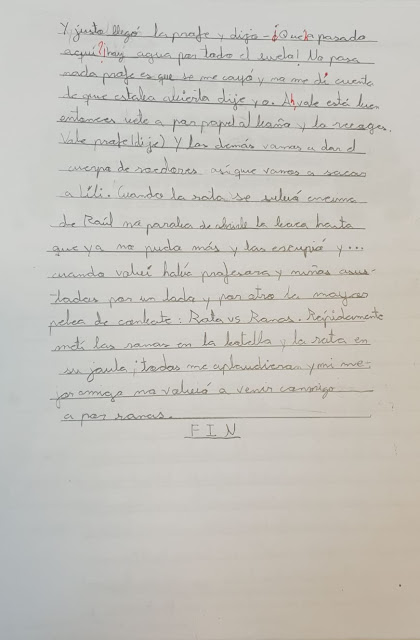 Y justo llegó la profe y dijo -¿Que ha pasado
aquí?¡hay agua por todo el suelo! No pasa
nada profe es que se me cayó y no me di cuenta
de que estaba abierta dije yo. Ah vale está bien
entonces vete a por papel al baño y lo recoges.
Vale profe (dije) Y los demás vamos a dar el
cuerpo de roedores así que vamos a sacar
a Lili. Cuando la rata se subió encima
de Raúl no paraba de abrirle la boca hasta
que ya no pudo más y las escupió y ...
cuando volví había profesora y niños asus-
tados por un lado y por otro la mayor
pelea de combate: Rata vs Ranas. Rápidamente
metí las ranas en la botella y la rata en
su jaula ¡todos me aplaudieron y mi me-
jor amigo no volvió a venir conmigo
a por ranas.
FIN